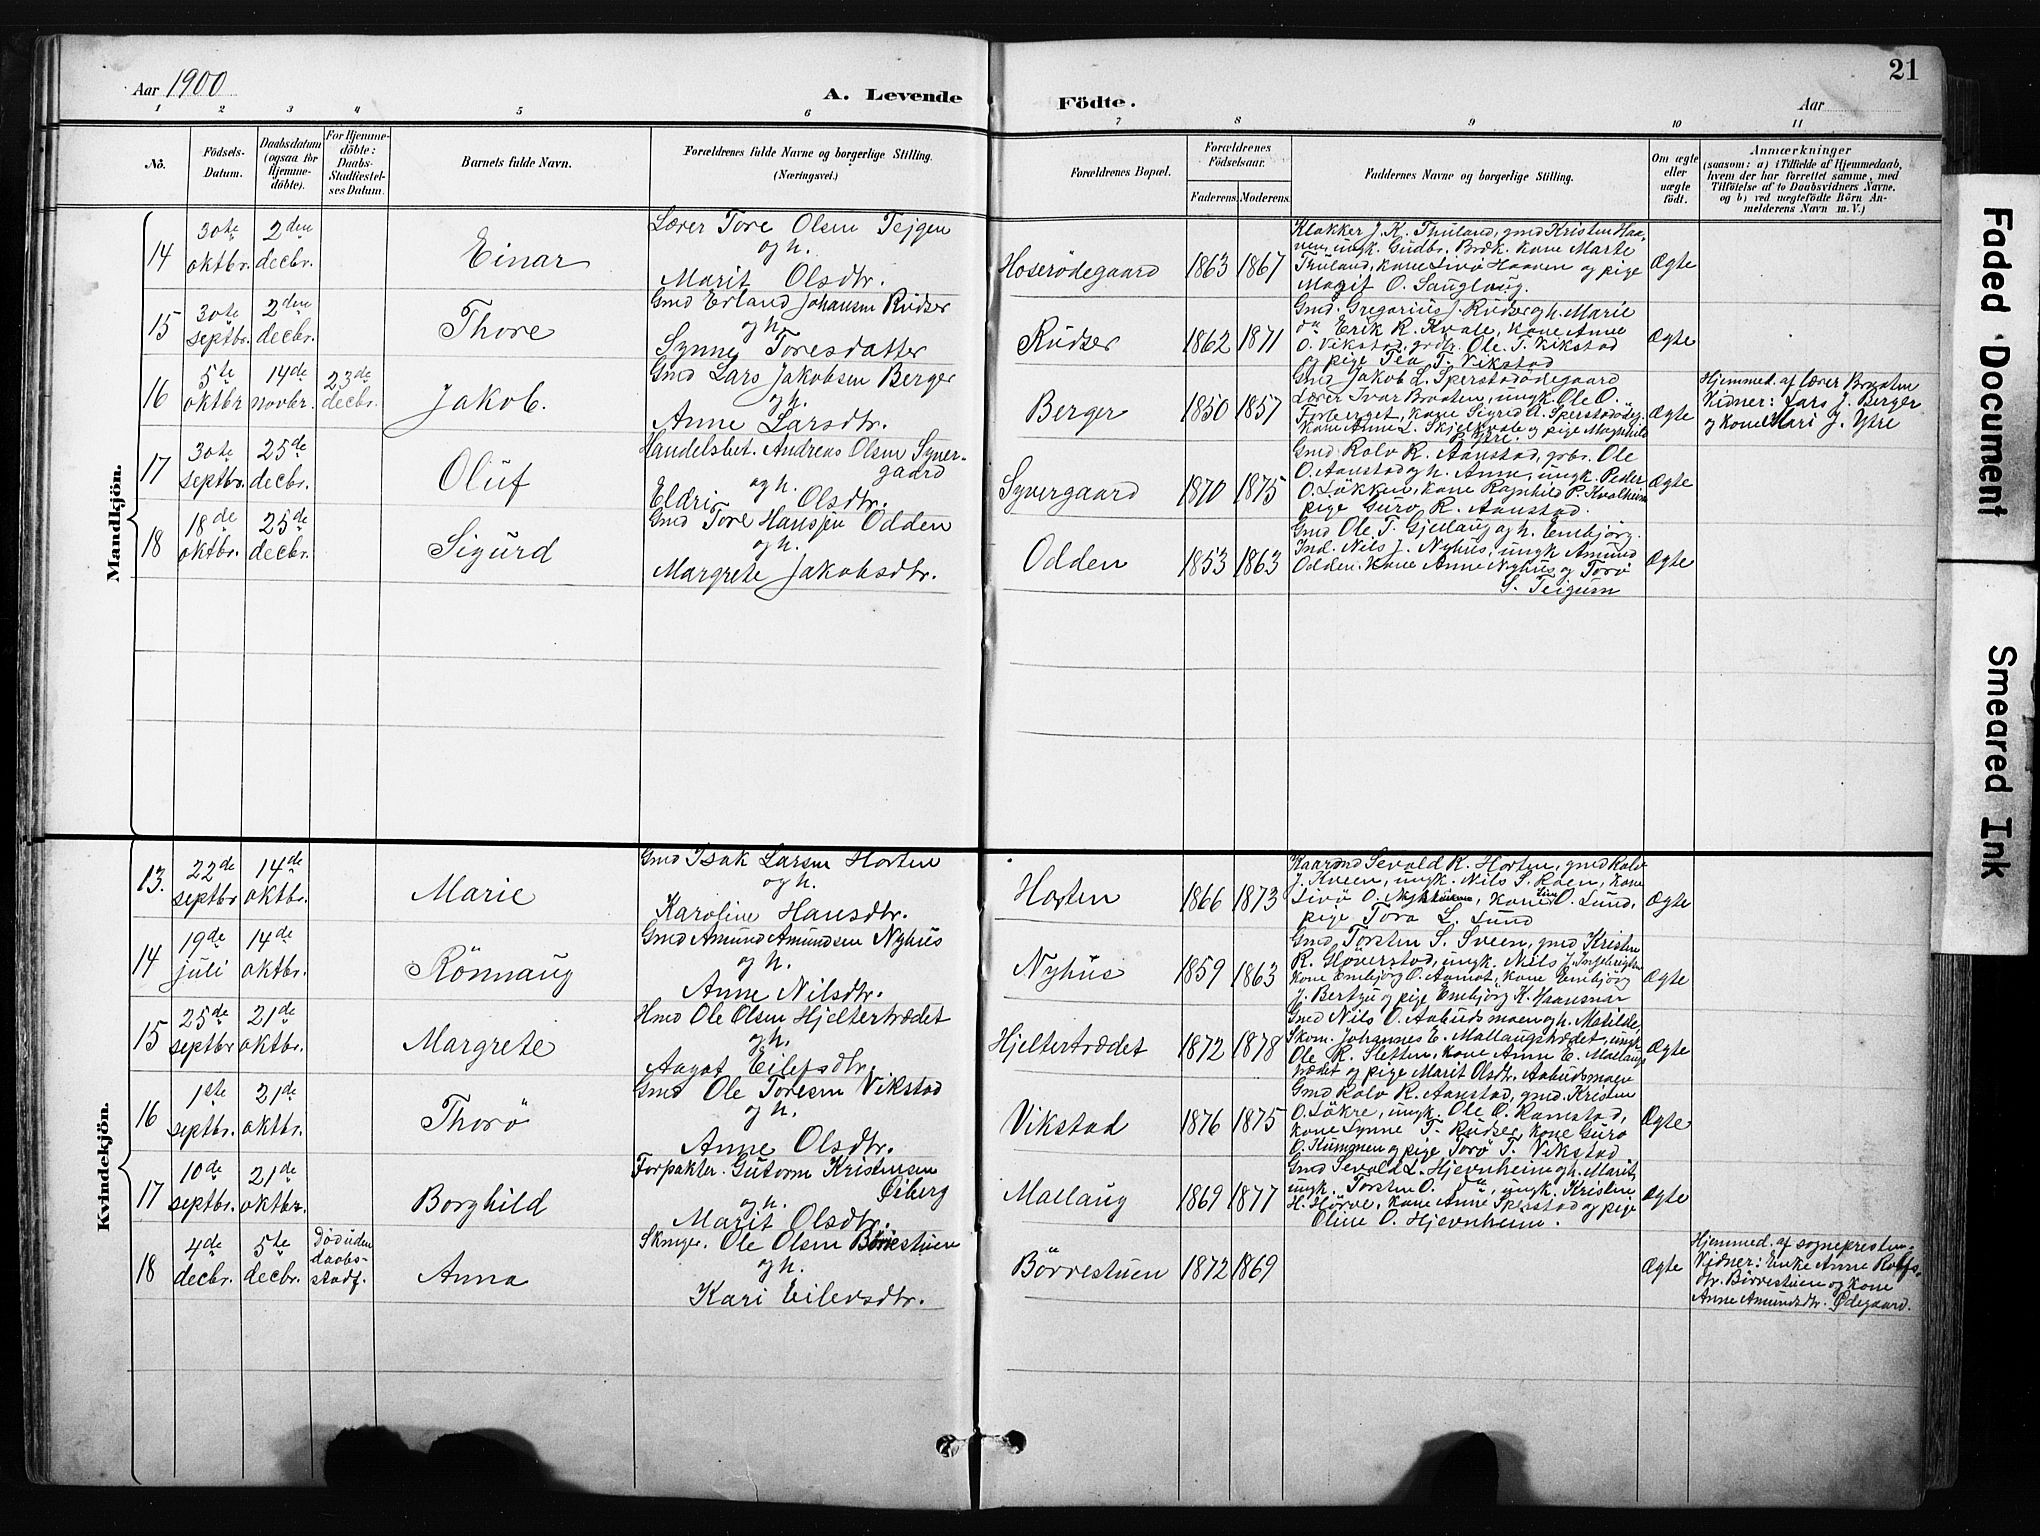 Aar 1900
A. Levende
Födte.
Aar
21
1 2 3 4 5 6 7 8 9 10 11
No.
Födsels-
Datum.
Daabsdatum
(ogsaa for
Hjemme-
döbte).
For Hjemme-
döbte:
Daabs-
Stadfæstel-
ses Datum.
Barnets fulde Navn.
Forældrenes fulde Navne og borgerlige Stilling.
(Næringsvei.)
Forældrenes Bopæl.
Forældrenes
Födselsaar.
Faderens.
Moderens.
Faddernes Navne og borgerlige Stilling.
Om ægte
eller
uægte
födt.
Anmærkninger
(saasom: a) i Tilfælde af Hjemmedaab,
hvem der har forrettet samme, med
Tilföielse af to Daabsvidners Navne.
og b) ved uægtefödte Börn An-
melderens Navn m. V.)
Mandkjön.
14
30te
oktbr.
2den
decbr.
Einar
Lærer Tore Olsen Tejgen
og h.
Marit Olsdtr.
Hoserödegaard
1863
1867
Klokker J. K. Thuland, gmd Kristen Haa-
nen, ungk. Gudbr. Brdk. kone Marte
Thuland, kone Livö Haanen og pige
Marit O. Sanglaug.
Ægte
15
30te
septbr.
2den
decbr.
Thore
Gmd Erland Johansen Rudser
og h.
Synne Toresdatter
Rudser
1862
1871
Gmd. Gregorius J. Rudser og h. Marie
do Erik R. Kvale, kone Anne
O. Vikstad, grdbr. Ole T. Vikstad
og pige Tea T. Vikstad
Ægte
16
5te
oktbr
14de
novbr.
23de
decbr.
Jakob.
Gmd Lars Jakobsen Berger
og h.
Anne Larsdtr.
Berger
1850
1857
Gmd Jakob L. Sperstadödegaard
Lærer Ivar Braaten, ungk Ole O.
Forberget, kone Sigrid A. Sperstadödeg.
kone Anne L. Skjelkvale og pige Magnhild
B. Ytre.
Ægte
Hjemmed. af lærer Braaten
Vidner: Lars J. Berger
og kone Mari J. Ytre
17
30te
septbr.
25de
decbr.
Oluf
Handelsbet. Andreas Olsen Syver-
gaard
og h.
Eldri Olsdtr.
Syvergaard
1870
1875
Gmd Rolv R. Aanstad, grbr. Ole
O. Aanstad og h. Anne, ungk. Peder
O. Lökken, kone Ragnhild P. Kvalheim
pige Guro R. Aanstad.
Ægte
18
18de
oktbr.
25de
decbr.
Sigurd
Gmd Tore Hansen Odden
og h.
Margrete Jakobsdtr.
Odden
1853
1863
Gmd Ole T. Gjellaug og h. Embjörg.
Ind. Nils J. Nyhus, ungk Amund
Odden, kone Anne Nyhus og Torö
S. Teigum
Ægte
Kvindekjön.
13.
22de
septbr
14de
oktbr.
Marie
Gmd Isak Larsen Horten
og h.
Karoline Hansdtr.
Horten
1866
1873
Kaarmd Sevald R. Horten, gmd Rolv
J. Kveen, ungk. Nils S. Roen, kone
Livö O. kone Liv O. Lund,
pige Tora L. Lund
Ægte
14
19de
juli
14de
oktbr.
Rönnaug
Gmd Amund Amundsen Nyhus
og h.
Anne Nilsdtr.
Nyhus
1859
1863
Gmd. Torsten S. Sveen, gmd Kristen
R. Glöverstad, ungk. Nils J. Ingebrigtsen
kone Embjörg O. Aamot, kone Embjörg
J. Bertzu og pige Embjörg K. Haansnar
Ægte
15
25de
septbr
21de
oktbr.
Margrete
Hmd Ole Olsen Hjeltertrædet
og h.
Aagot Eilevsdtr.
Hjeltertrædet
1872
1878
Gmd Nils O. Aabudsmoen og h. Matilde,
Skom. Johannes E. Mallaugstrædet, ungk
Ole R. Sletten, kone Anne E. Mallaugs
trædet og pige Marit Olsdtr. Aabudsmoen
Ægte
16
1ste
septbr.
21de
oktbr.
Thorö
Gmd Ole Toresen Vikstad
og h.
Anne Olsdtr.
Vikstad
1876
1875
Gmd Rolv R. Aanstad, gmd. Kristen
O. Lökre, ungk. Ole O. Ramstad,
kone Synne T. Rudser, kone Guro
O. Kummen og pige Torö T. Vikstad
Ægte
17
10de
septbr.
21de
oktbr.
Borghild
Forpakter. Gutorm Kristensen
Öiberg
og h.
Marit Olsdtr.
Mallaug
1869
1877
Gmd Sevald L. Hjevnheim og h. Marit,
ungk. Torsten O. do, ungk. Kristen
H. Hörve, kone Anne Sperstad og pige
Oline O. Hjevnheim.
Ægte
18
4de
decbr.
5te
decbr.
Död uden
daabs-
stadf.
Anna
Skræger. Ole Olsen Börrestuen
og h.
Kari Eilevsdtr.
Börrestuen
1872
1869
Ægte
Hjemmed. af sognepresten.
Vidner: Enke Anne Rolfs-
dtr. Börrestuen og kone
Anne Amundsdtr. Ödegaard.
Faded Document
Smeared Ink